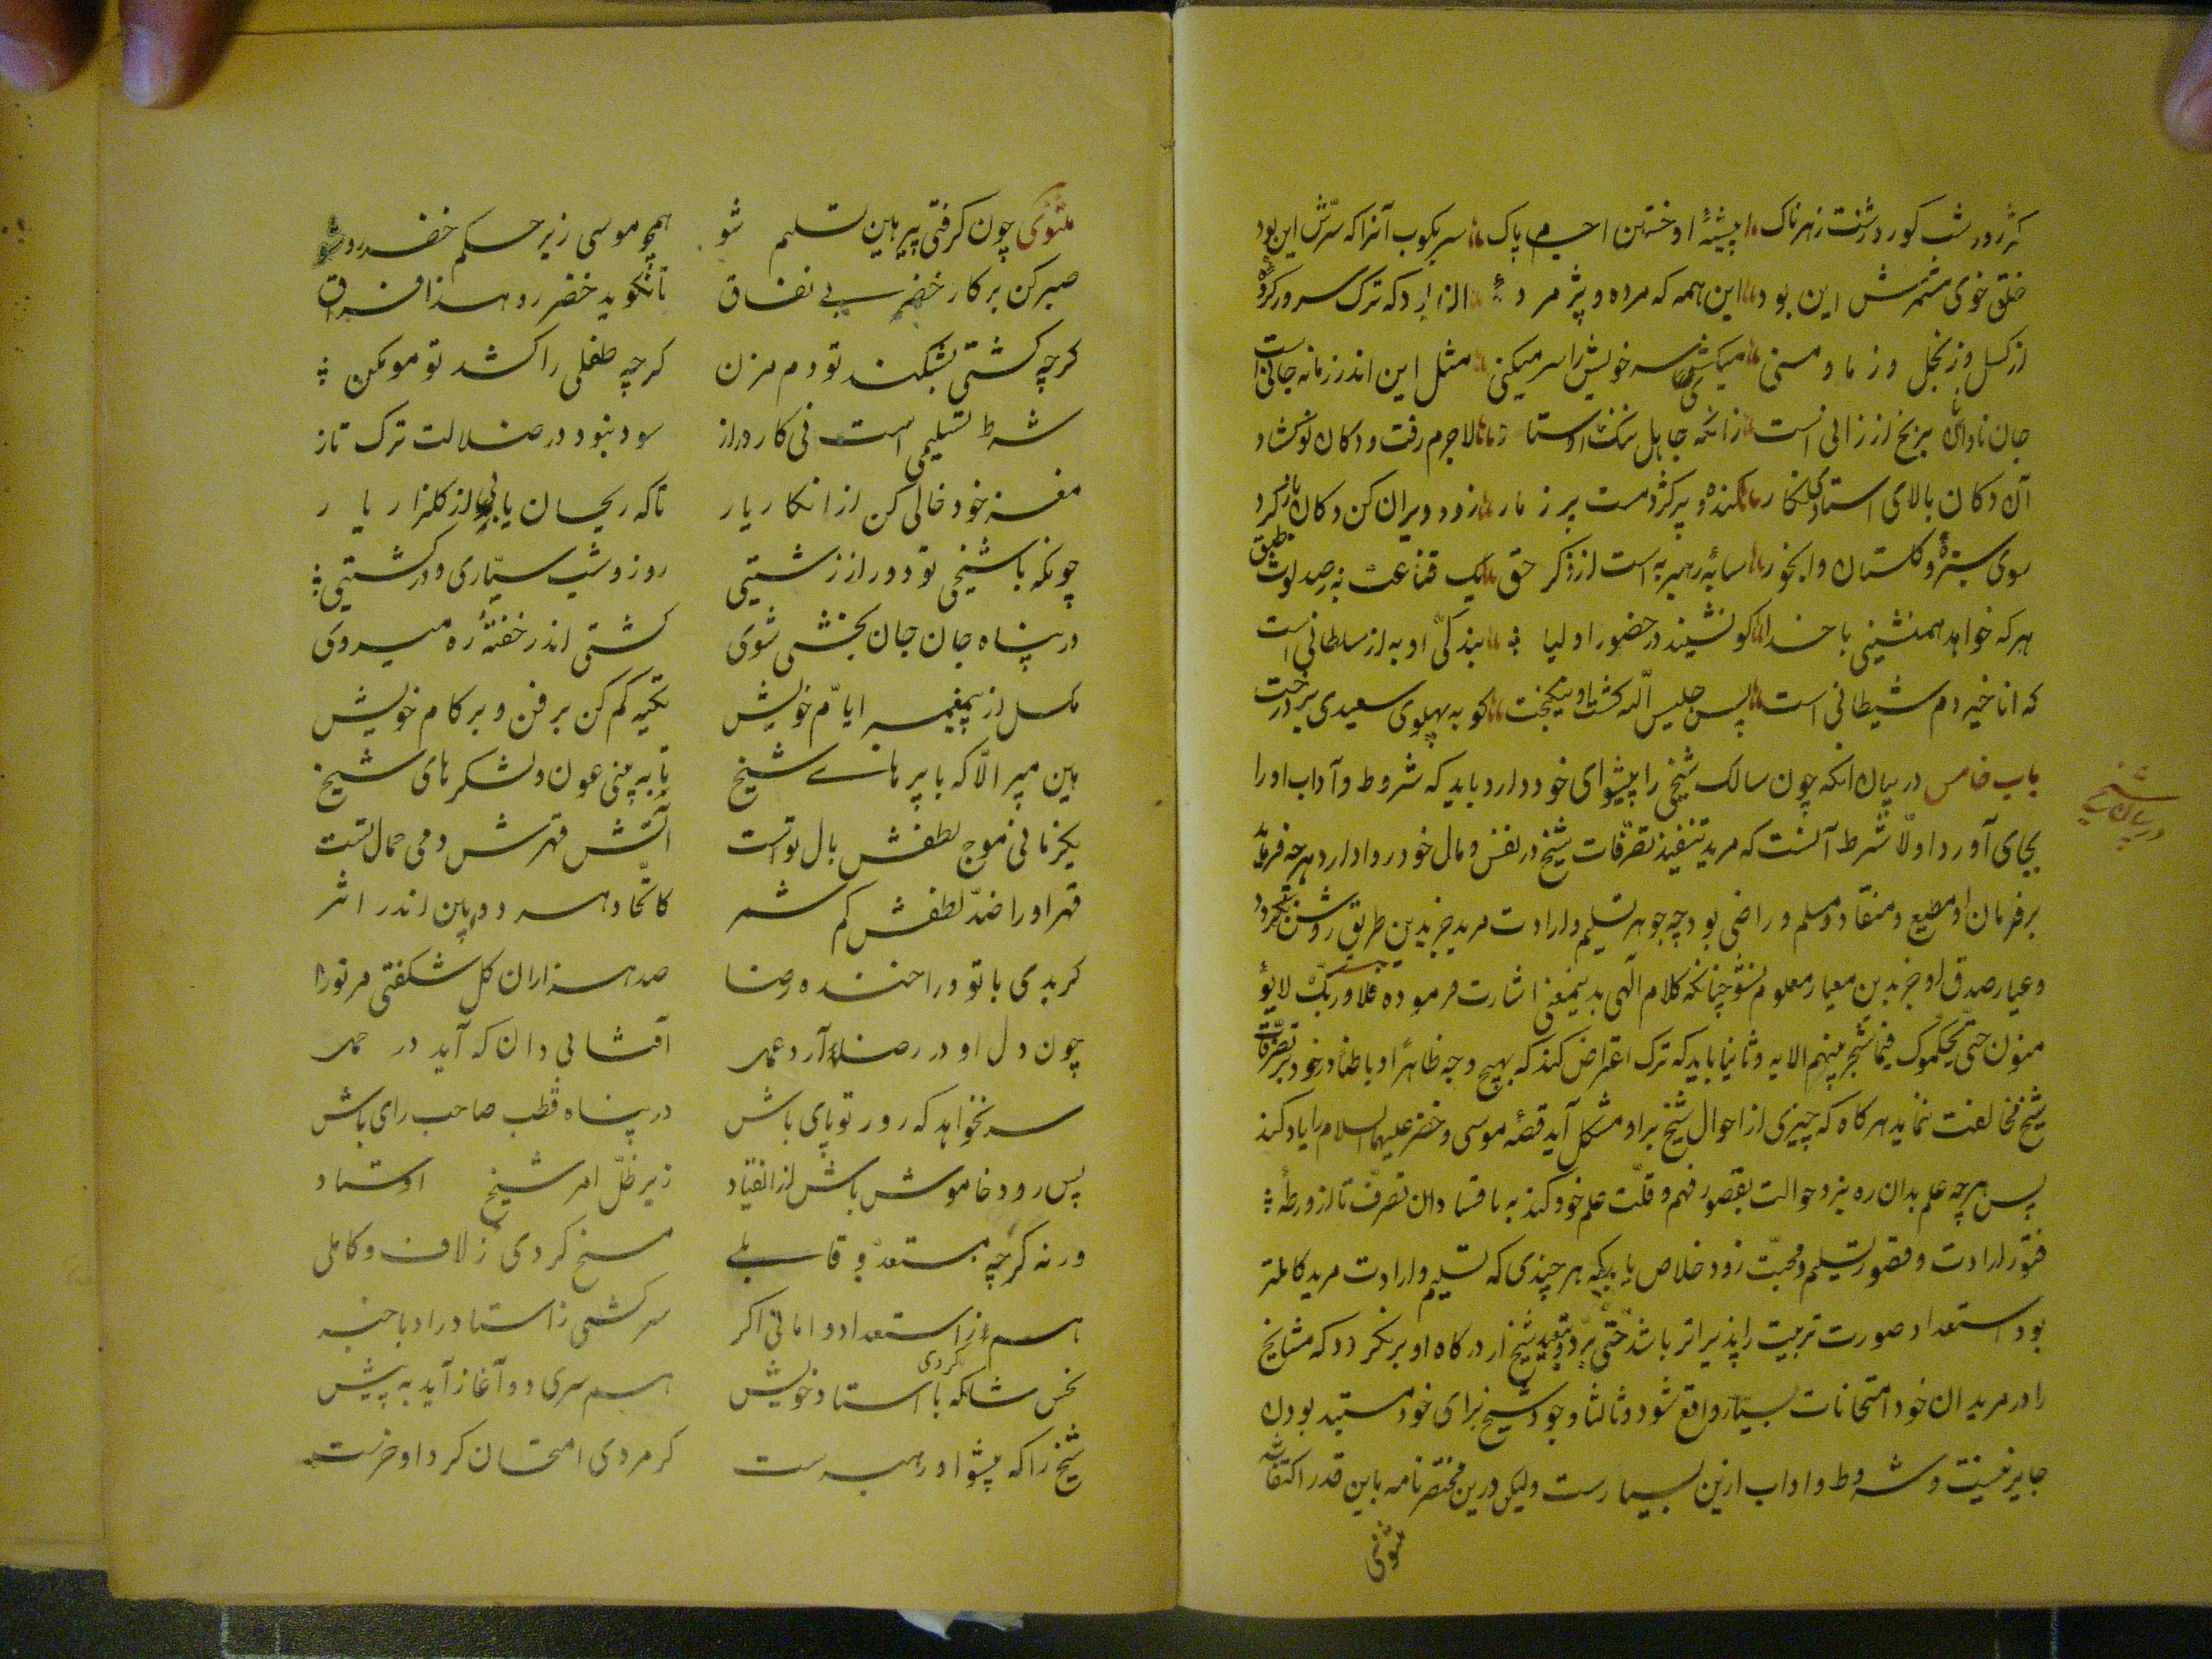 کژ رو و شب کور و زشت و زهرناک پیشۀ او خستن اجسام پاک سر بکوب آنرا که سرّش این بود
خلق خوی مستمرش این بود این همه که مرده و پژمرده که ترک سرور کردۀ
از کسل وز بخل وز ما و منی میکشی سر خویش را سر میکنی مثل این اندر زمانه جانی است
جان نادان برنج ارزانی است زانکه جاهل ننگ از استاد لاجرم رفت و دکان نو گشاد
آن دکان بالای استاد نکار کنده و پر کژدمست پر ز مار زود ویران کن دکان بازگرد
سوی سبزه و گلستان و آبخورد سایۀ رهبر به است از ذکر حق یک قناعت به ز صد لوت طبق
هر که خواهد همنشینی با خدا کو نشیند در حضور اولیا بندگیّ او به از سلطانی است
که انا خیر دم شیطانی است پس جلیس الله گشت نیکبخت کو به پهلوی سعیدی برد رخت
باب خامس در بیان انکه چون سالک شیخی را پیشوای خود دارد باید که شروط و آداب اورا
در بیان شیخ
بجای آورد اولا شرط آنست که مرید تنفیذ تصرّفات شیخ در نفس و مال خود روا دارد هرچه فرماید
بر فرمان او مطیع و منقاد و مسلم و راضی بود چه جوهر تسلیم و ارادت مرید جز بدین طریق روشن نگردد
و عیار صدق او جز بدین معیار معلوم نشود چنانکه کلام الهی بدینمعنی اشارت فرموده فلا و ربک لا یؤ
منون حتّی یحکّموک فیما شجر بینهم الایه و ثانیا باید که ترک اعتراض کند که بهیچ وجه ظاهرًا و باطنًا در خود بر تصرّفات
شیخ مخالفت ننماید هرکاه که چیزی از احوال شیخ بر او مشکل آید قصّۀ موسی و خضر علیهما السلام را یاد کند
پس هرچه علم بدان ره نبرد حوالت بقصور فهم و قلّت علم خود کند نه با فساد ان تصرّف تا از ورطۀ
فتور ارادت و قصور تسلیم و محبّت زود خلاص یابد بلکه هر چندی که تسلیم و ارادت مرید کاملتر
بود استعداد صورت تربیت را پذیراتر باشد حتّی بردّ و تبعید شیخ از درکاه او برنکردد که مشایخ
را در مریدان خود امتحانات بسیار واقع شود و ثالثا وجود شیخ برای خود مستبد بودن
جایز نیست و شروط و اداب ازین بسیارست ولیکن درین مختصرنامه باین قدر اکتفا شد
مثنوی
مثنوی چون کرفتی پیر هین تسلیم شو همچو موسی زیر حکم خضر رو
صبر کن بر کار خضر بی نفاق تا نکوید خضر رو هذا فراق
کرچه کشتی بشکند تو دم مزن کرچه طفلی را کشد تو مو مکن
شرط تسلیمی است نی کار دراز سود نبود در ضلالت ترک تاز
مغز خود خالی کن از انکار یار تا که ریحان یابی از کلزار یار
چونکه با شیخی تو دور از زشتیی روز و شب سیّاری و در کشتیی
در پناه جان جان بخشی شوی کشتی اندر خفتۀ ره میروی
مکسل از پیغمبر ایّام خویش تکیه کم کن بر فن و بر کام خویش
هین مپر الّا که با پرهای شیخ تا به بینی عون و لشکرهای شیخ
یکزمانی موج لطفش بال توست آتش قهرش دمی حمال تست
قهر او را ضدّ لطفش کم شمر کاتّحاد هر دو بین اندر اثر
کر بدی با تو ورا خنده رضا صد هزاران کل شکفتی مر تورا
چون دل او در رضا آرد عمل آفتابی دان که آید در حمل
سر نخواهد که رود تو پای باش در پناه قطب صاحب رای باش
پس رو و خاموش باش از انقیاد زیر ظلّ امر شیخ اوستاد
ورنه کرچه مستعدّ و قابلی مسخ کردی ز لاف و کاملی
هم ز استعداد وامانی اکر سر کشی ز استاد راد باخبر
نحس شاکه با استاد خویش همسری و آغاز آید به پیش
شیخ را که پیشوا و رهبرست کر مردی امتحان کرد او خرست